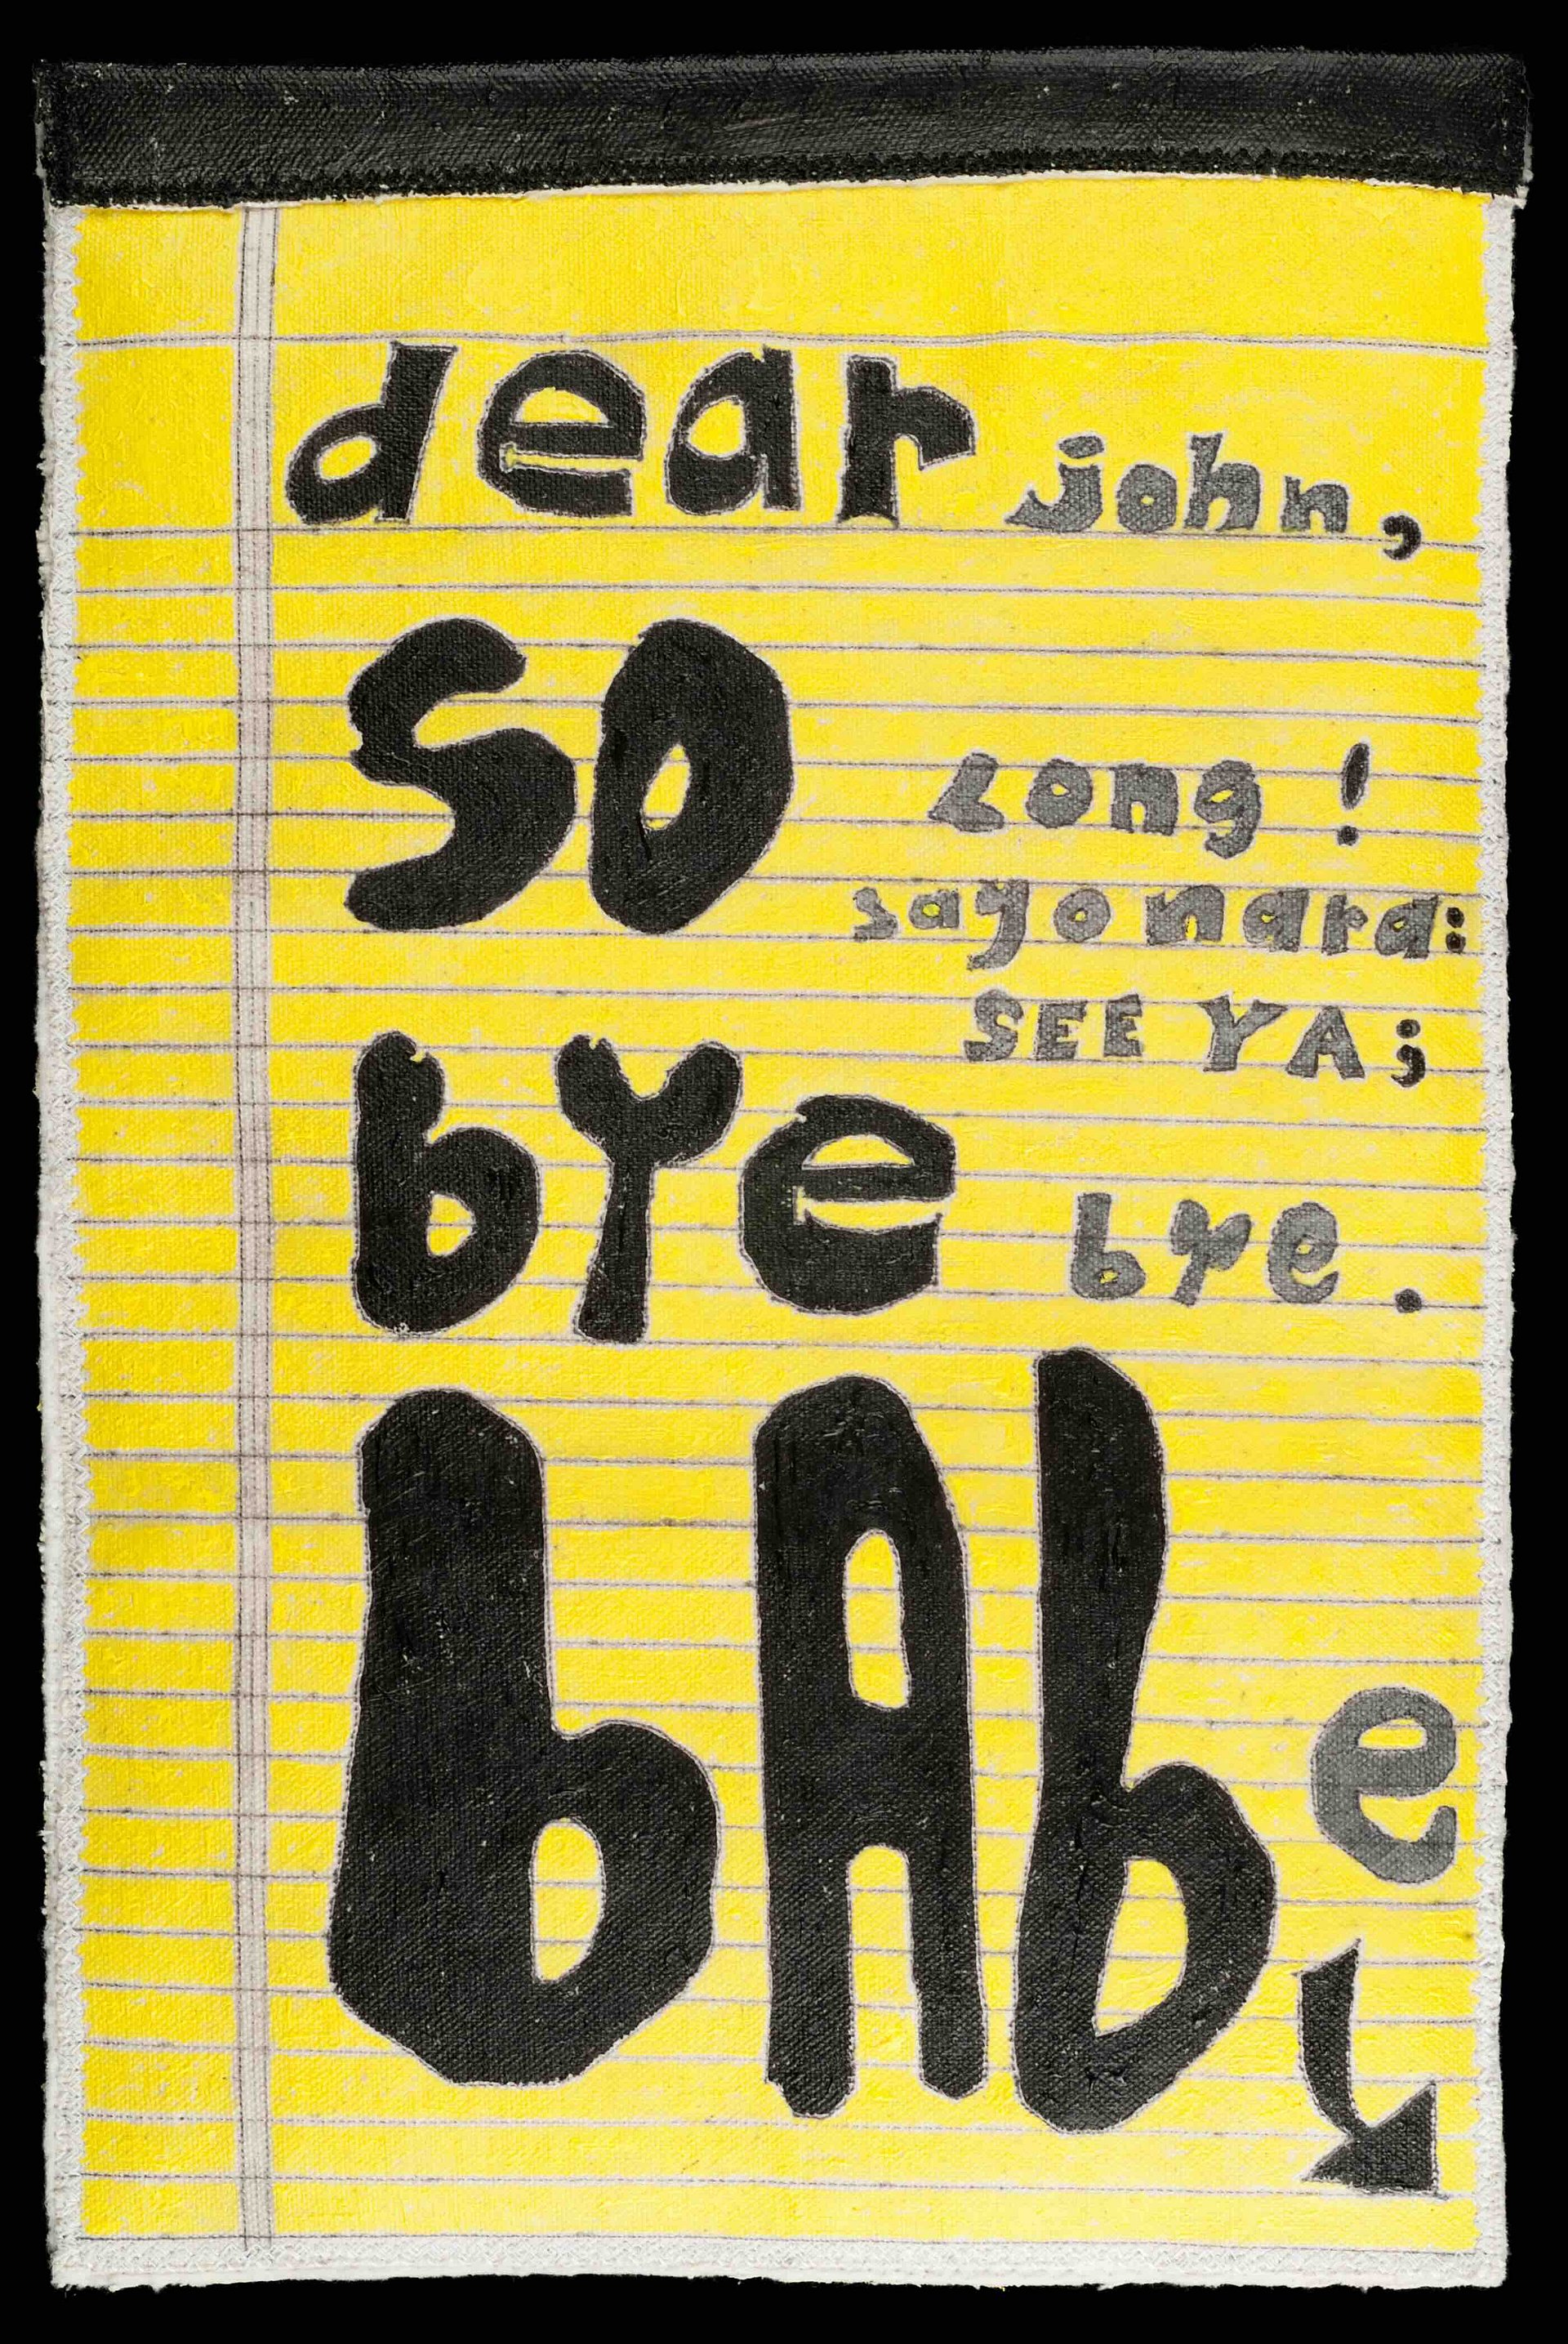 dear john,
so Long !
sayonara:
SEE YA;
bYe bye.
bAbe